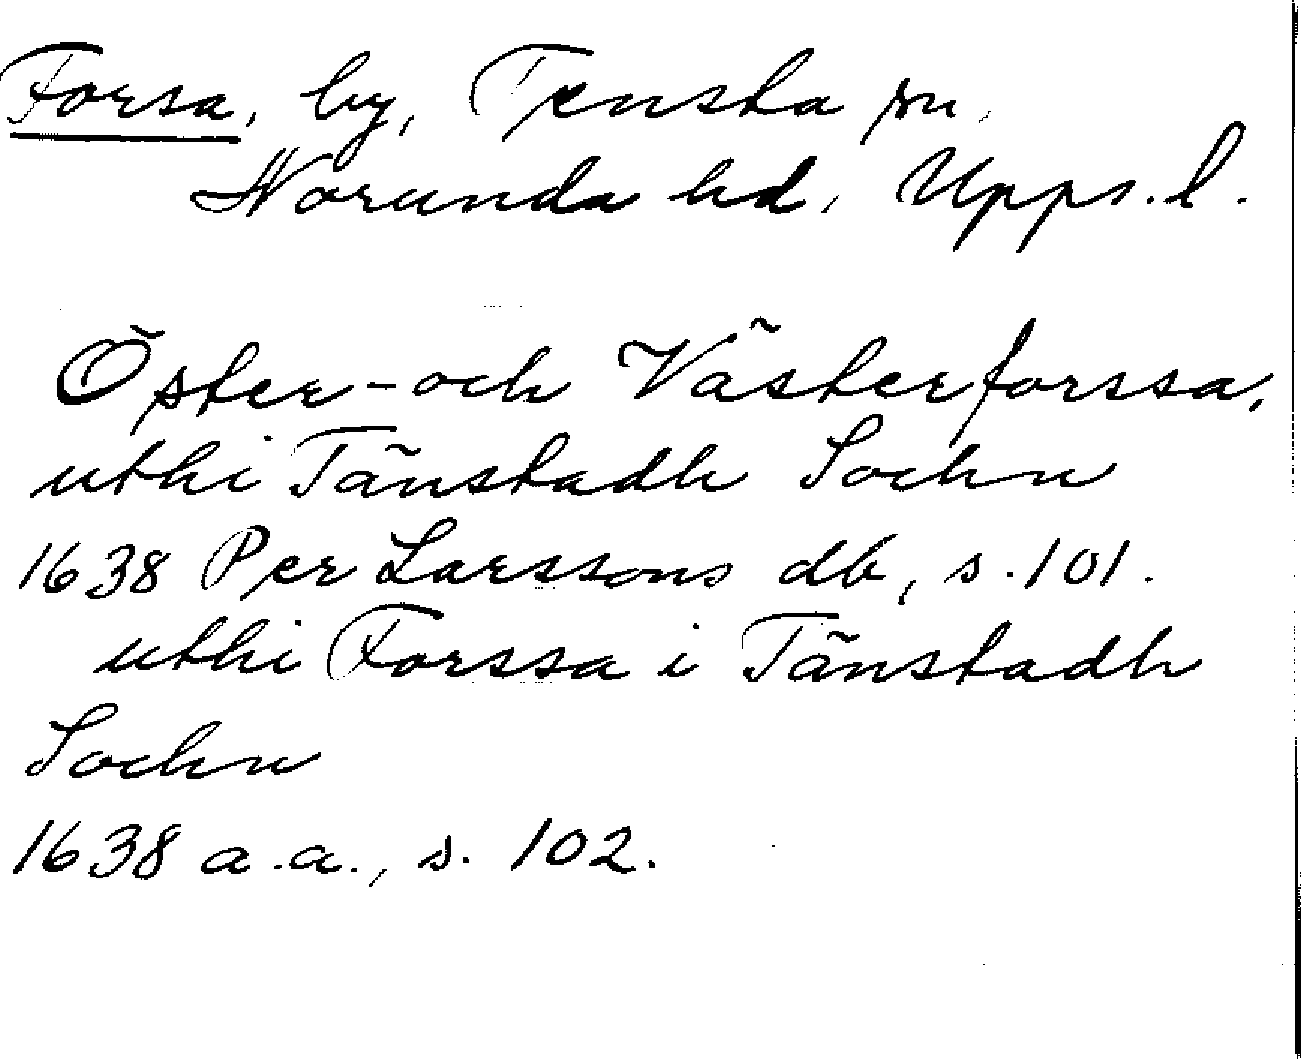 Forsa, by, Tensta sn.
Norunda hd, Upps. l.
Öster- och Västerforssa,
uthi Tänstadh Sochn
1638 Per Larssons db, s. 101.
uthi Forssa i Tänstadh
Sochn
1638 a.a., s. 102.